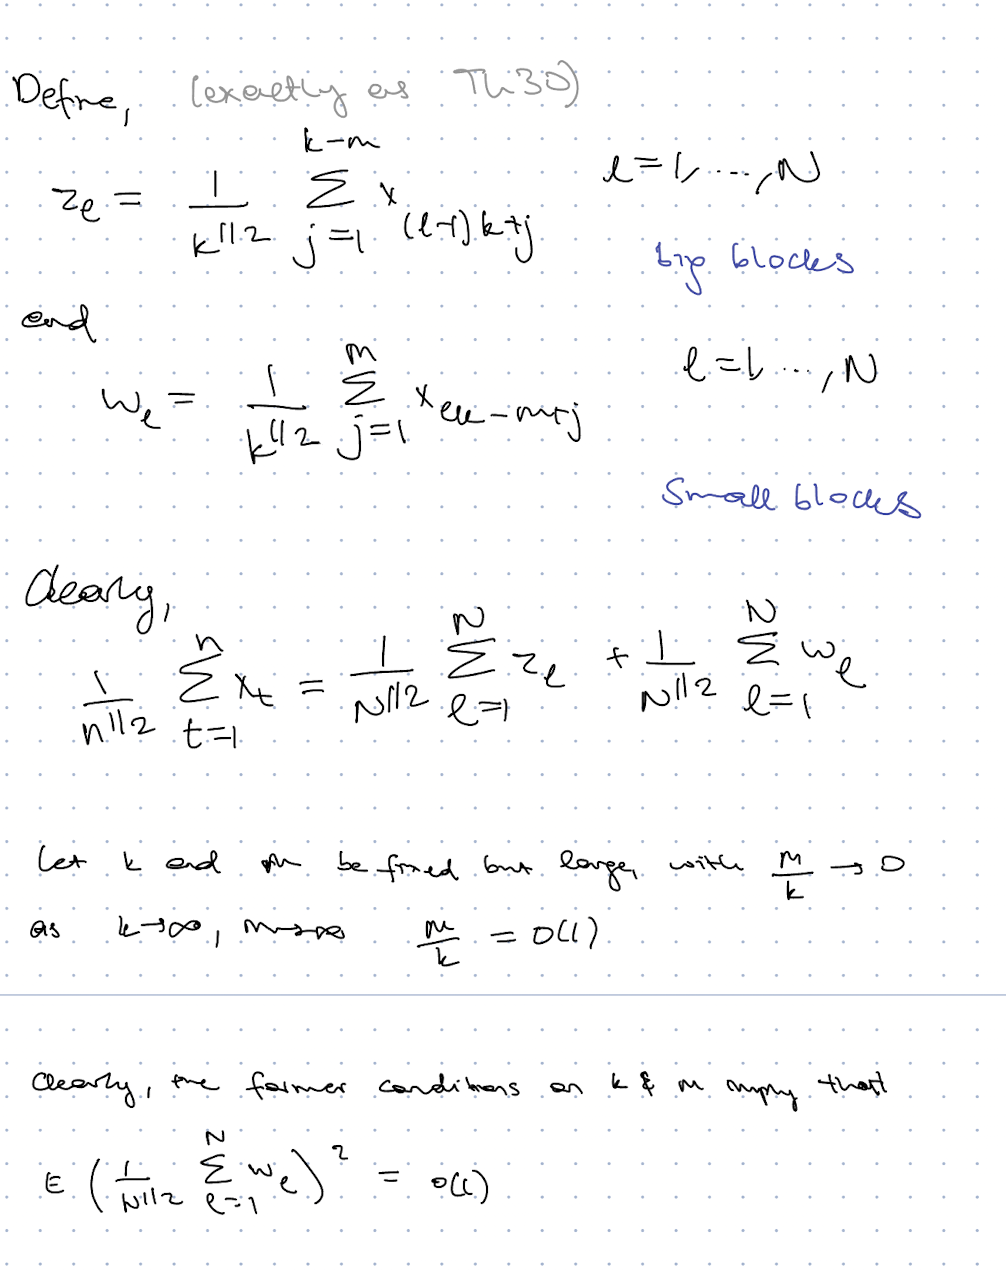 Define, (exactly as Th30)
z_ℓ = 1/k^{1/2} Σ_{j=1}^{k-m} x_{(ℓ-1)k+j} ℓ=1,...,N
big blocks
and
w_ℓ = 1/k^{1/2} Σ_{j=1}^{m} x_{ℓk-m+j} ℓ=1,...,N
Small blocks
Clearly,
1/n^{1/2} Σ_{t=1}^{n} x_t = 1/N^{1/2} Σ_{ℓ=1}^{N} z_ℓ + 1/N^{1/2} Σ_{ℓ=1}^{N} w_ℓ
Let k and m be fixed but large, with m/k → 0
as k→∞, m→∞ m/k = o(1)
Clearly, the former conditions on k & m imply that
E (1/N^{1/2} Σ_{ℓ=1}^{N} w_ℓ)^2 = o(1)